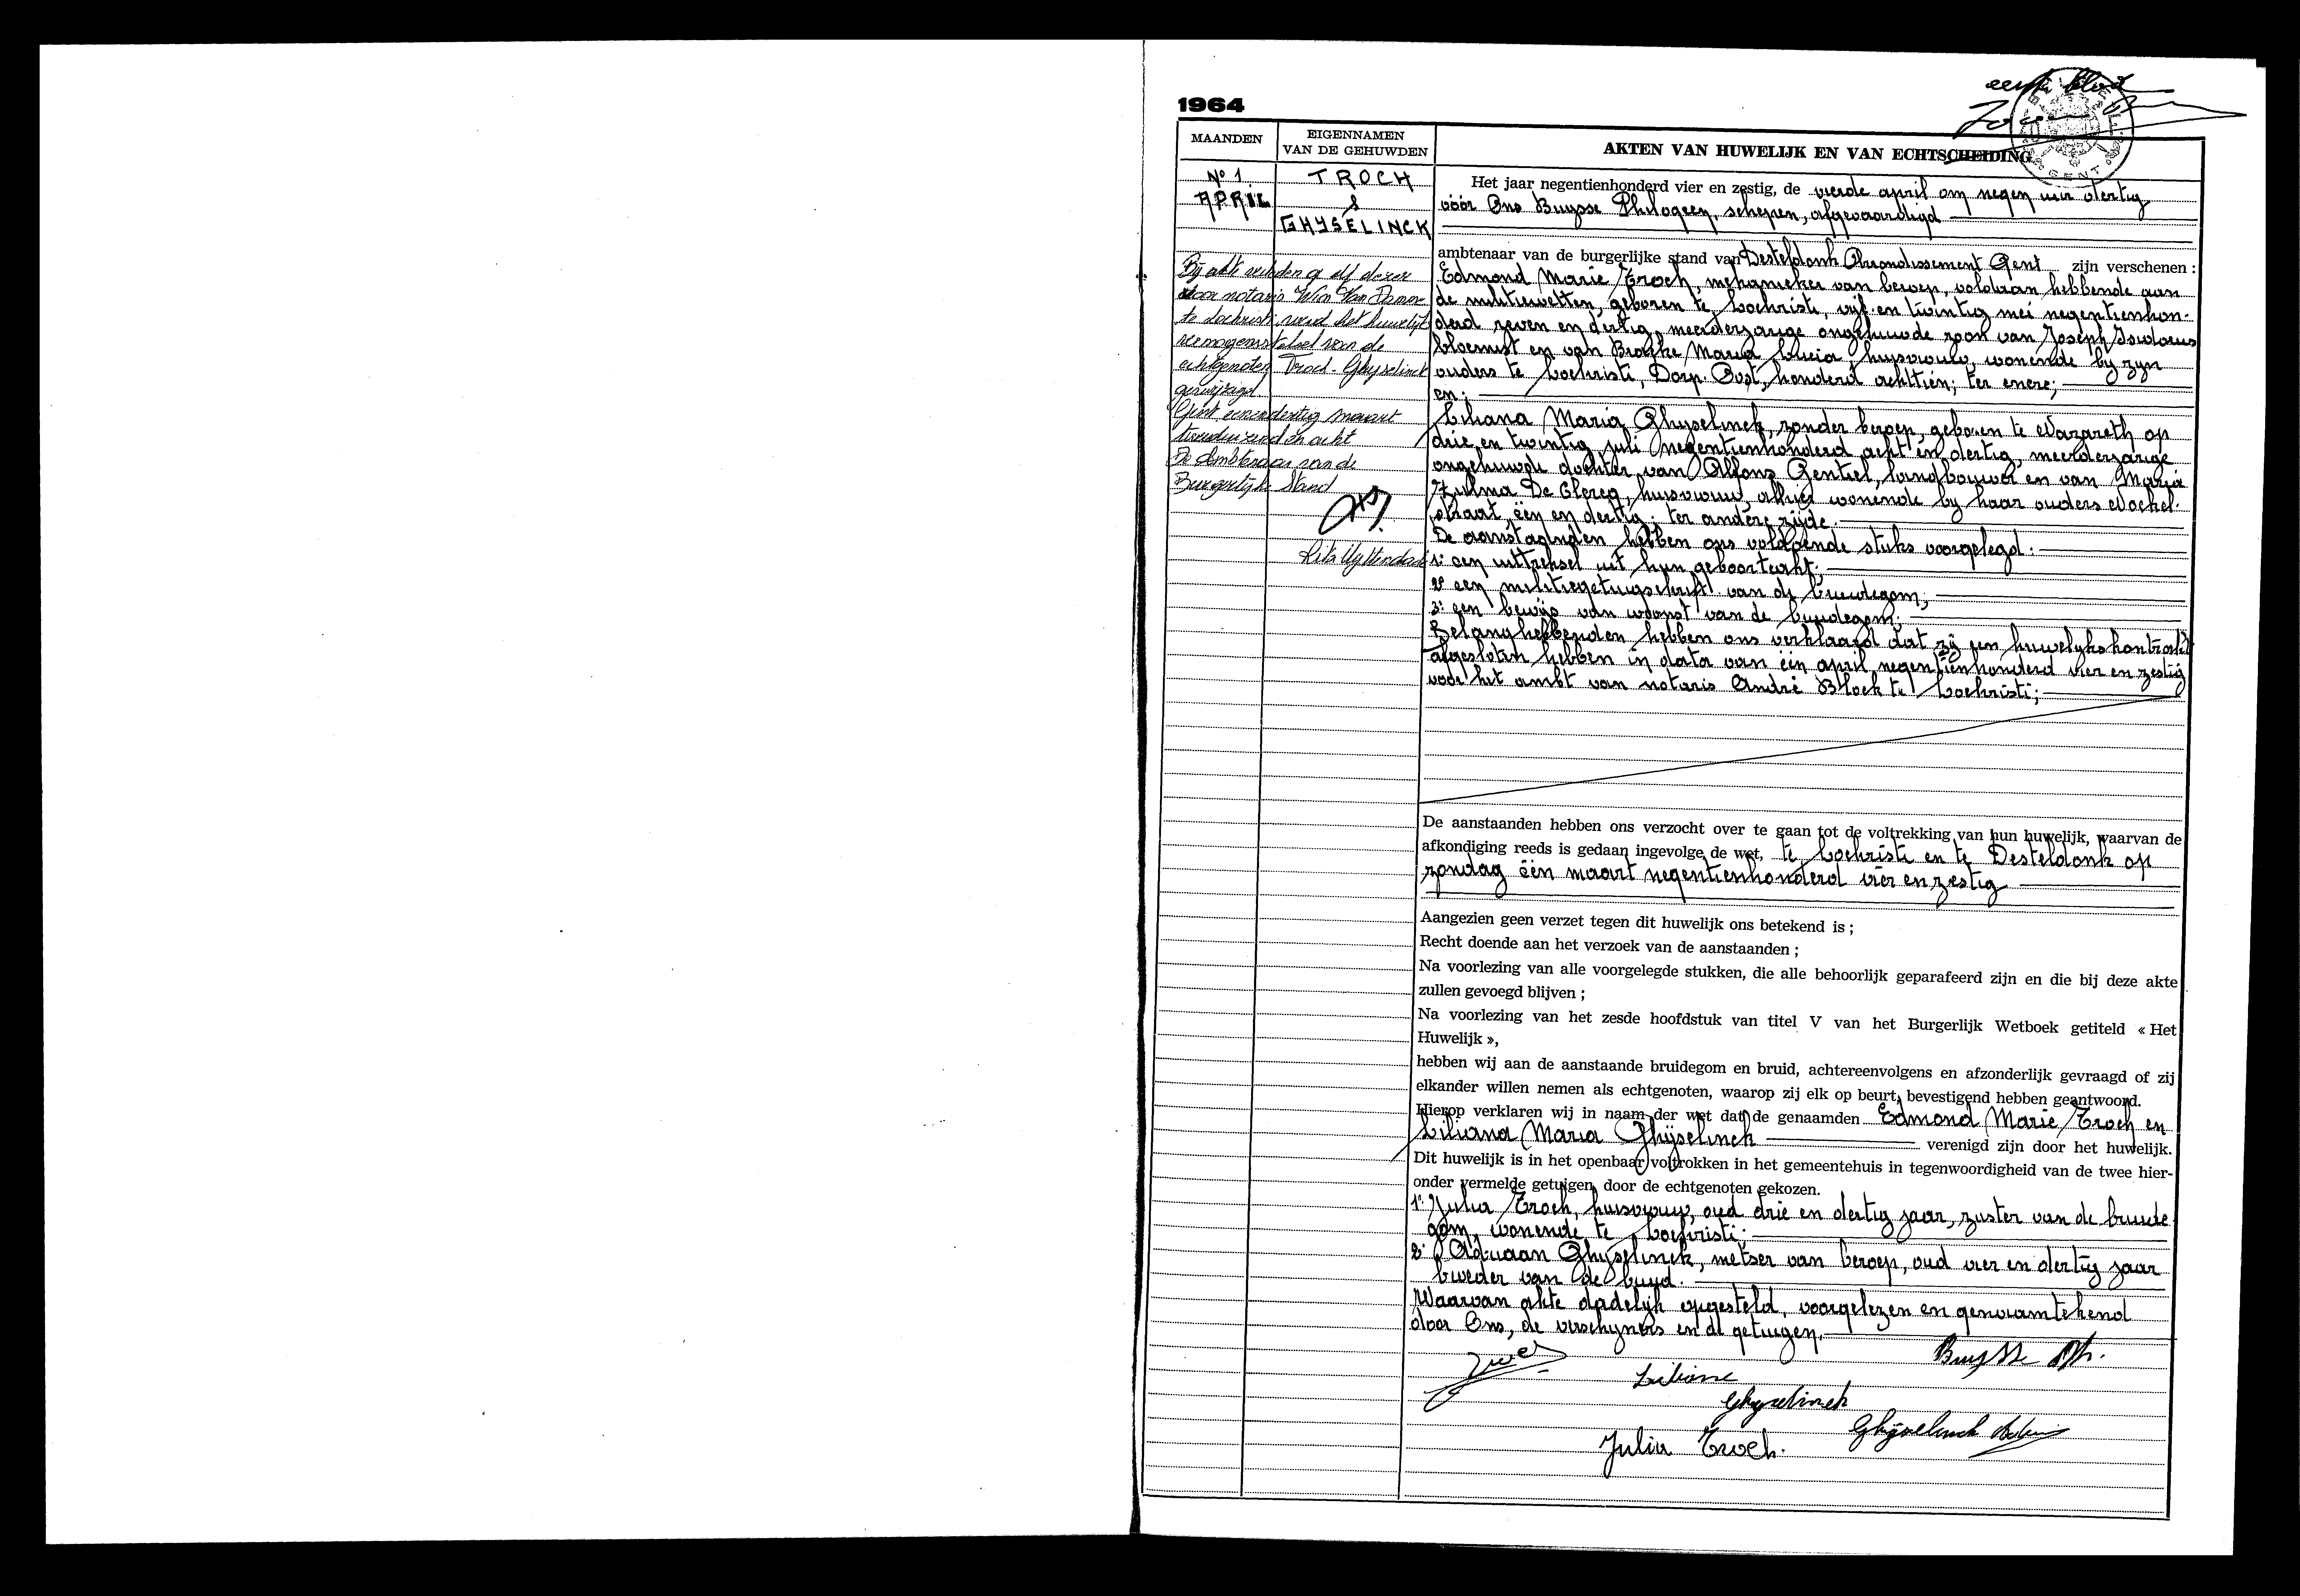 eerste blad
1964
MAANDEN
EIGENNAMEN
VAN DE GEHUWDEN
AKTEN VAN HUWELIJK EN VAN ECHTSCHEIDING
GENT
Nº 1
APRIL
TROCH
&
GHYSELINCK
Bij akte verleden op elf dezer
door notaris Wim Van Damme
te Lochristi werd het huwelijks
vermogensstelsel van de
echtgenoten Troch-Ghyselinck
gewijzigd
Gent, eenendertig maart
tweeduizend en acht
De Ambtenaar van de
Burgerlijke Stand
Rita Uyttendaele
Het jaar negentienhonderd vier en zestig, de vierde april om negen uur dertig
vóór Ons Buysse Philogeen, schepen, afgevaardigd
ambtenaar van de burgerlijke stand van Desteldonk Arrondissement Gent zijn verschenen :
Edmond Marie Troch, mekanieker van beroep, voldaan hebbende aan
de militiewetten, geboren te Lochristi, vijf en twintig mei negentienhon-
derd zeven en dertig, meerderjarige ongehuwde zoon van Joseph Isidorus
bloemist en van Maria Lucia, huisvrouw, wonende bij zijn
ouders te Lochristi, Dorp Oost, honderd achttien; ter enere;
en:
Liliana Maria Ghyselinck, zonder beroep, geboren te Nazareth op
drie en twintig juli negentienhonderd acht en dertig, meerderjarige
ongehuwde dochter van Alfons Gentiel, landbouwer en van Maria
Zulma De Clercq, huisvrouw, alhier wonende bij haar ouders
straat, één en dertig; ter andere zijde.
De aanstaanden hebben ons voldoende stuks voorgelegd:
1° een uittreksel uit hun geboorteakt;
2° een militiegetuigschrift van de bruidegom;
3° een bewijs van woonst van de bruidegom.
Belanghebbenden hebben ons verklaard dat zij een huwelijkskontrakt
afgesloten hebben in data van één april negentienhonderd vier en zestig
voor het ambt van notaris André Block te Lochristi;
De aanstaanden hebben ons verzocht over te gaan tot de voltrekking van hun huwelijk, waarvan de
afkondiging reeds is gedaan ingevolge de wet, te Lochristi en te Desteldonk op
zondag één maart negentienhonderd vier en zestig
Aangezien geen verzet tegen dit huwelijk ons betekend is ;
Recht doende aan het verzoek van de aanstaanden ;
Na voorlezing van alle voorgelegde stukken, die alle behoorlijk geparafeerd zijn en die bij deze akte
zullen gevoegd blijven ;
Na voorlezing van het zesde hoofdstuk van titel V van het Burgerlijk Wetboek getiteld « Het
Huwelijk »,
hebben wij aan de aanstaande bruidegom en bruid, achtereenvolgens en afzonderlijk gevraagd of zij
elkander willen nemen als echtgenoten, waarop zij elk op beurt, bevestigend hebben geantwoord.
Hierop verklaren wij in naam der wet dat de genaamden Edmond Marie Troch en
Liliana Maria Ghyselinck verenigd zijn door het huwelijk.
Dit huwelijk is in het openbaar voltrokken in het gemeentehuis in tegenwoordigheid van de twee hier-
onder vermelde getuigen, door de echtgenoten gekozen.
1° Julia Troch, huisvrouw, oud drie en dertig jaar, zuster van de bruide
gom, wonende te Lochristi;
2° Adriaan Ghyselinck, metser van beroep, oud vier en dertig jaar
broeder van de bruid.
Waarvan akte dadelijk opgesteld, voorgelezen en genaamtekend
door Ons, de verschijners en de getuigen.
Buysse Ph.
Liliane
Ghyselinck
Ghyselinck
Julia Troch.